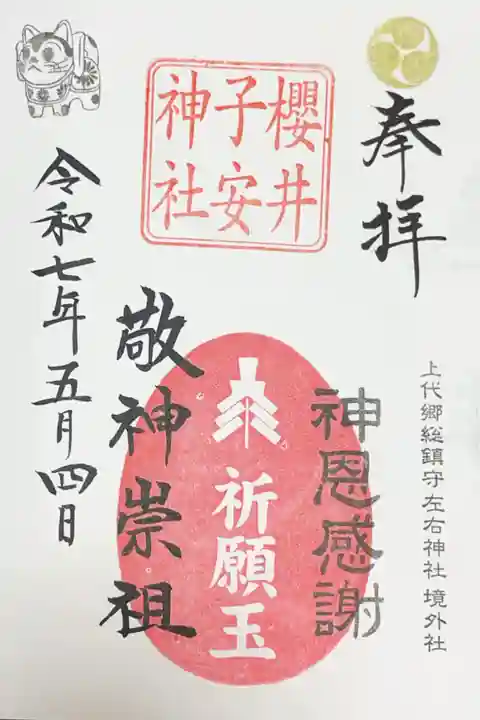 奉拝
上代郷総鎮守左右神社 境外社
神恩感謝
櫻井
子安
神社
祈願玉
敬神崇祖
令和七年五月四日